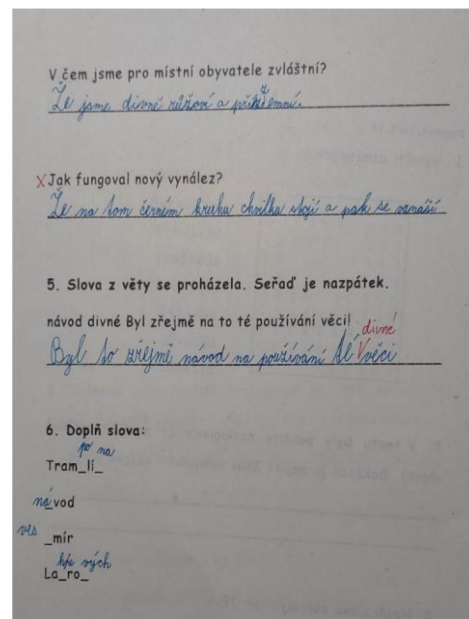 V čem jsme pro místní obyvatele zvláštní?
Že jsme divně růžoví a přízemní.
X Jak fungoval nový vynález?
Že na tom černém kruhu chvilku stojí a pak se vznáší
5. Slova z věty se proházela. Seřaď je nazpátek.
návod divné Byl zřejmě na to té používání věci!
divné
Byl to zřejmě návod na používání té V věci
6. Doplň slova:
po na
Tram_lí_
ná vod
ves _mír
vých
La_ro_